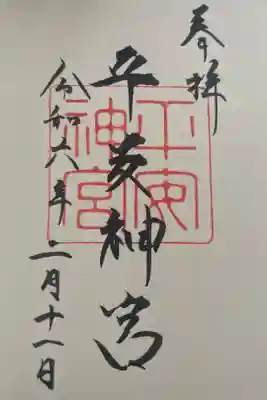 奉拝
平安神宮
平安神宮
令和六年
二月十一日